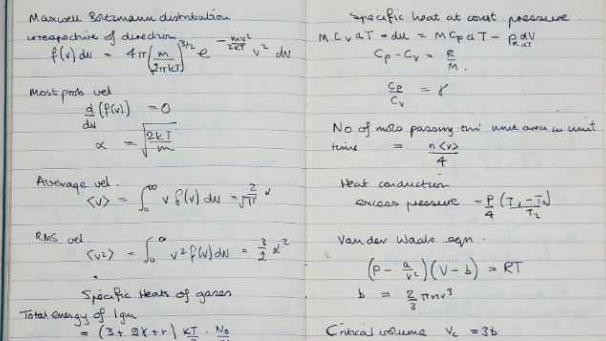 Maxwell Boltzmann distribution
irrespective of direction
f(v) dv = 4π (m/2πkT)^3/2 e^-mv²/2kT v² dv
Most prob vel
d/dv (f(v)) = 0
α = √(2kT/m)
Average vel.
<v> = ∫₀^∞ v f(v) dv = 2/√π α
RMS vel
<v²> = ∫₀^∞ v² f(v) dv = 3/2 α²
Specific Heats of gases
Total energy of 1gm
= (3 + 2 + r) kT/2 . N₀
Specific heat at const pressure
M Cv dT = du = M Cp dT - dV
Cp - Cv = R/M.
Cp/Cv = γ
No of mols passing thro' unit area in unit
time = n<v>/4
Heat conduction
excess pressure P/4 (T₁ - T₂)/T₂
Van der Waals eqn.
(P - a/v²)(V - b) = RT
b = 2/3 π n v³
Critical volume Vc = 3b